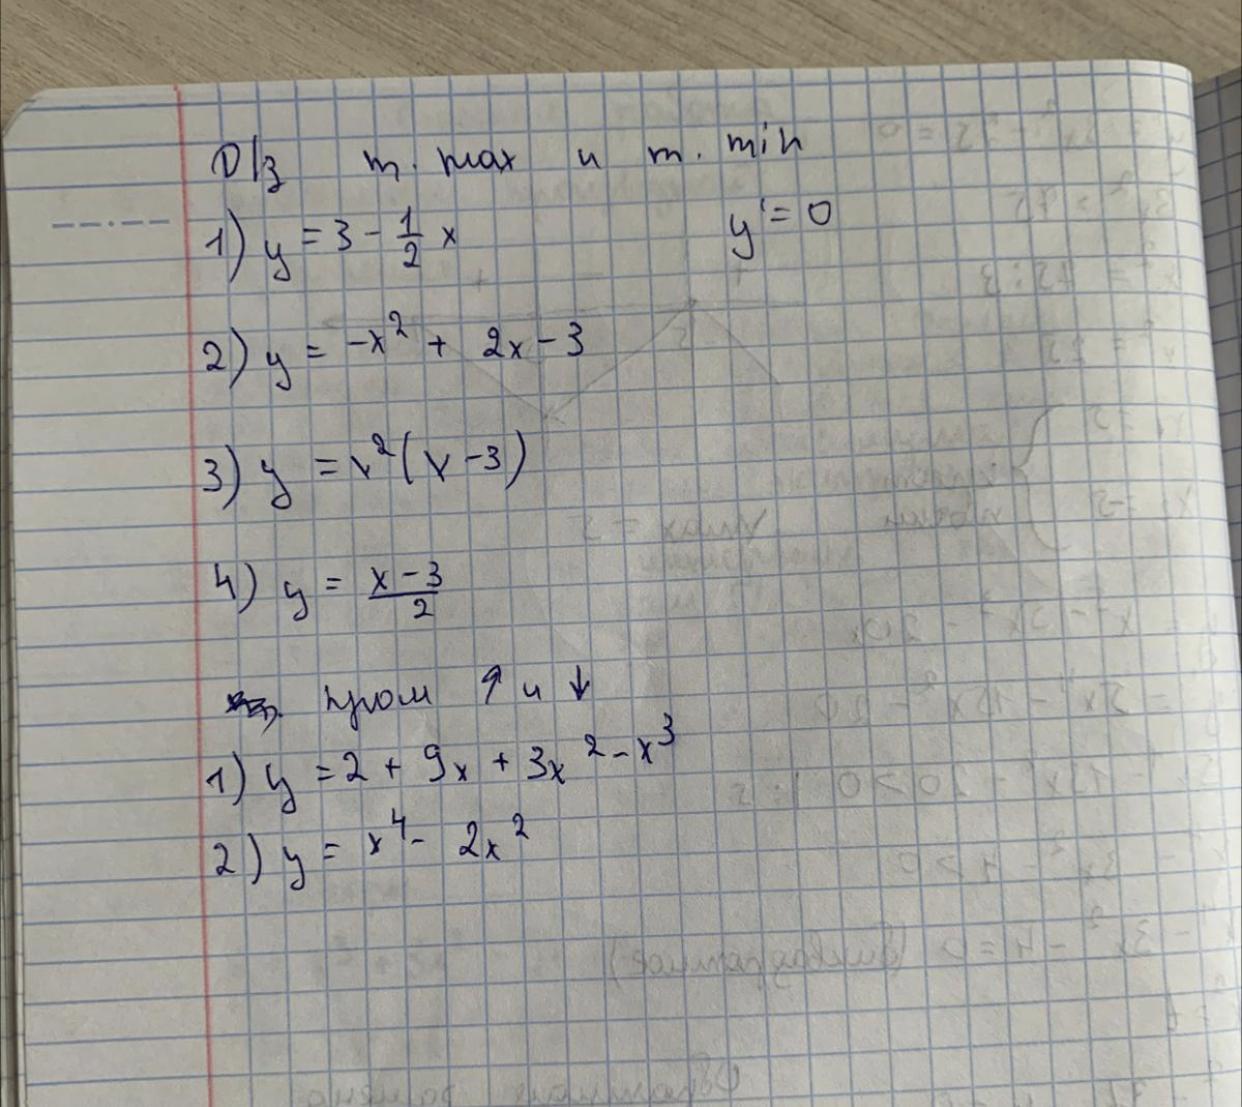 D/з т. max и т. min
1) y = 3 - 1/2 x y' = 0
2) y = -x² + 2x - 3
3) y = x²(x - 3)
4) y = x - 3 / 2
пром ↑ и ↓
1) y = 2 + 9x + 3x² - x³
2) y = x⁴ - 2x²